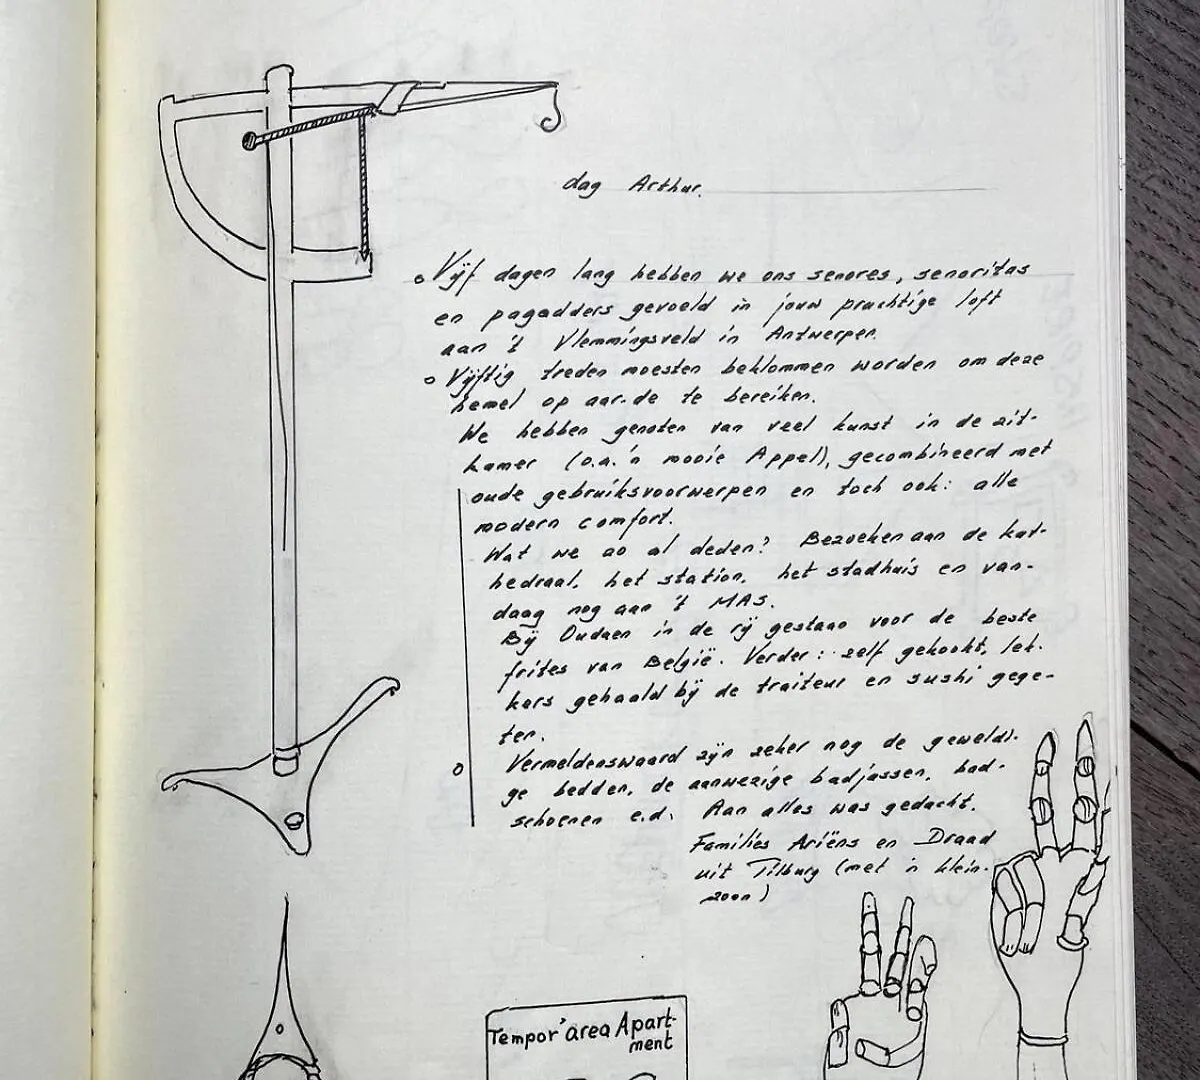 dag Arthur,
Vijf dagen lang hebben we ons senores, senoritas
en pagadders gevoeld in jouw prachtige loft
aan 't Vlemmingsveld in Antwerpen.
Vijftig treden moesten beklommen worden om deze
hemel op aar.de te bereiken.
We hebben genoten van veel kunst in de zit-
kamer (o.a. 'n mooie Appel), gecombineerd met
oude gebruiksvoorwerpen en toch ook: alle
modern comfort.
Wat we zo al deden? Bezoeken aan de kat-
hedraal, het station, het stadhuis en van-
daag nog aan 't MAS.
Bij Oudaen in de rij gestaan voor de beste
frites van België. Verder: zelf gekookt, lek-
kers gehaald bij de traiteur en sushi gege-
ten.
Vermeldenswaard zijn zeker nog de geweldi-
ge bedden, de aanwezige badjassen, bad-
schoenen e.d. Aan alles was gedacht.
Families Ariëns en Draad
uit Tilburg (met 'n klein-
zoon)
Tempor'area Apart-
ment